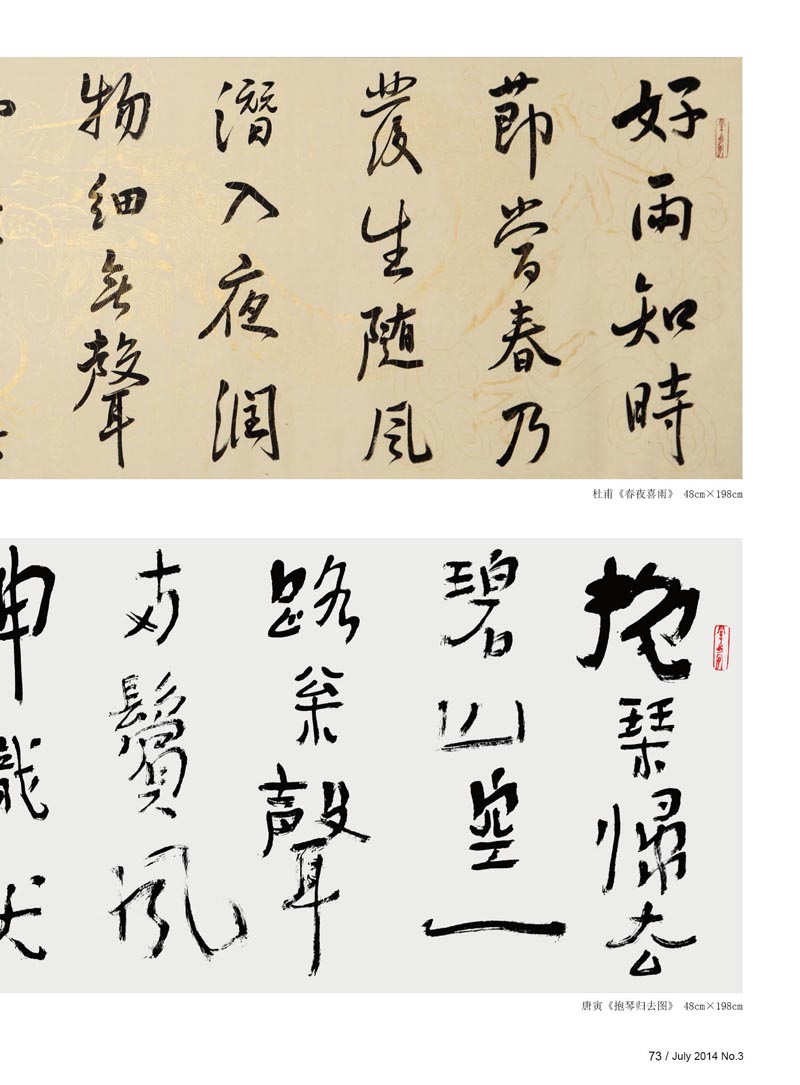 好雨知時
節當春乃
發生随風
潛入夜潤
物細無聲
杜甫《春夜喜雨》 48cm×198cm
抱琴歸去
碧山空一
路枀聲
两鬢風
唐寅《抱琴归去图》 48cm×198cm
73 / July 2014 No.3